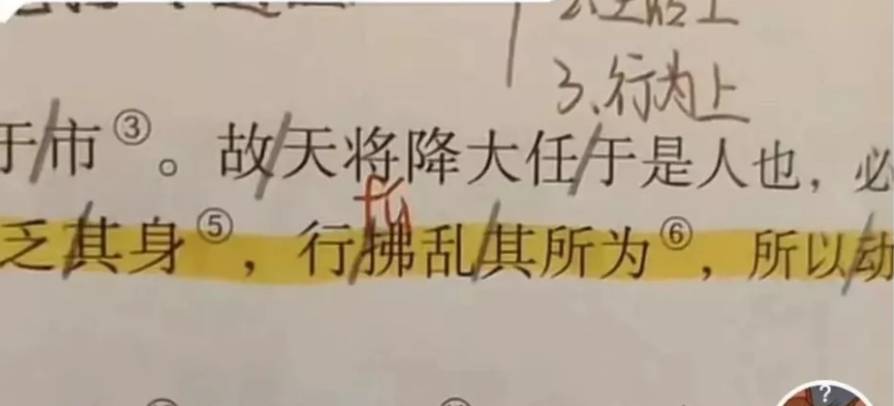 3、行为上
于/市③。故/天将降大任/于是人也，必
fú
乏/其身⑤，行/拂乱/其所为⑥，所以/动